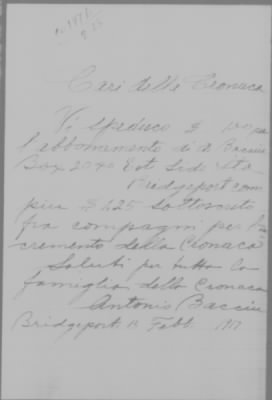 Cari della Cronaca
Vi spedisco $ 1.00 per
l'abbonamento di A Baccin
Box 2040 East Side Sta
Bridgeport Com
più $ 1.25 sottoscritto
fra compagni per l'in
cremento della Cronaca
Saluti per tutta la
famiglia della Cronaca
Antonio Baccin
Bridgeport 13 Febb. 1917